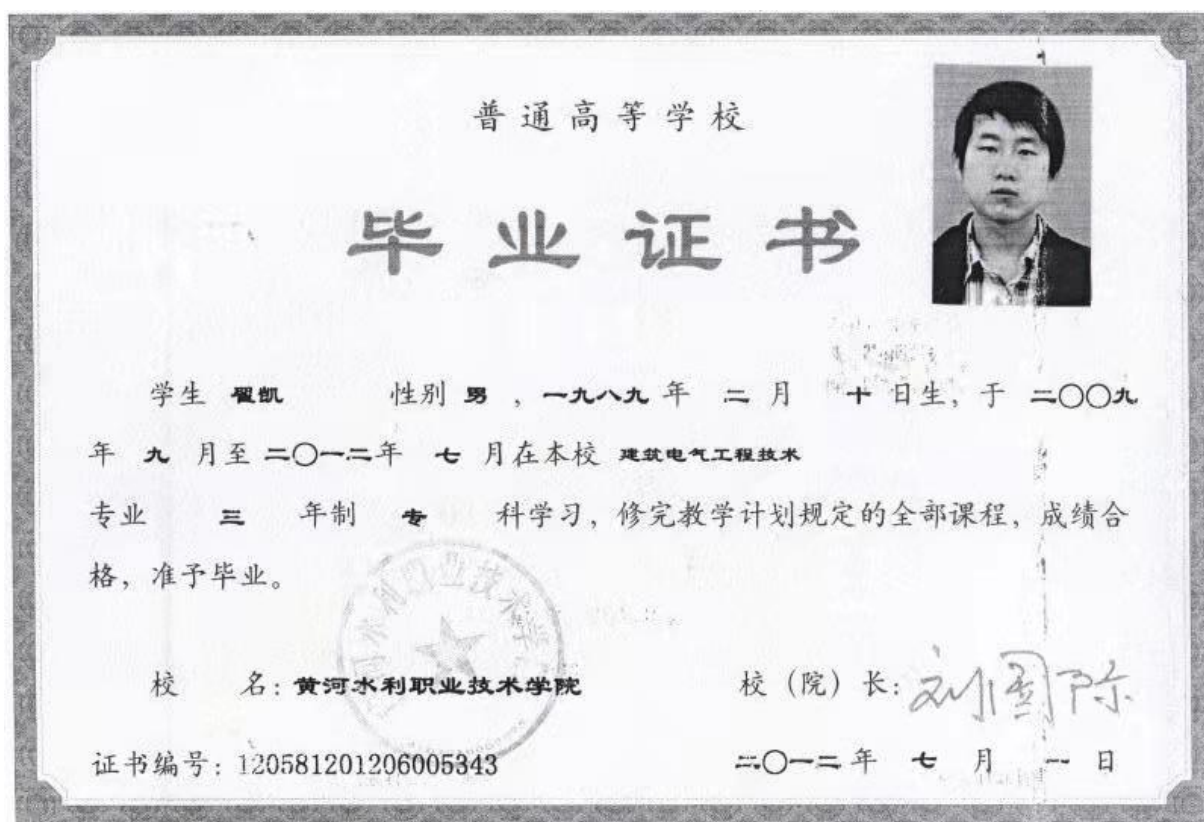 普通高等学校
毕业证书
学生 翟凯 性别 男 ，一九八九 年 二 月 十 日生，于 二〇〇九
年 九 月至 二〇一二年 七 月在本校 建筑电气工程技术
专业 三 年制 专 科学习，修完教学计划规定的全部课程，成绩合
格，准予毕业。
校 名：黄河水利职业技术学院 校（院）长：刘国际
证书编号：120581201206005343 二〇一二年 七 月 一 日